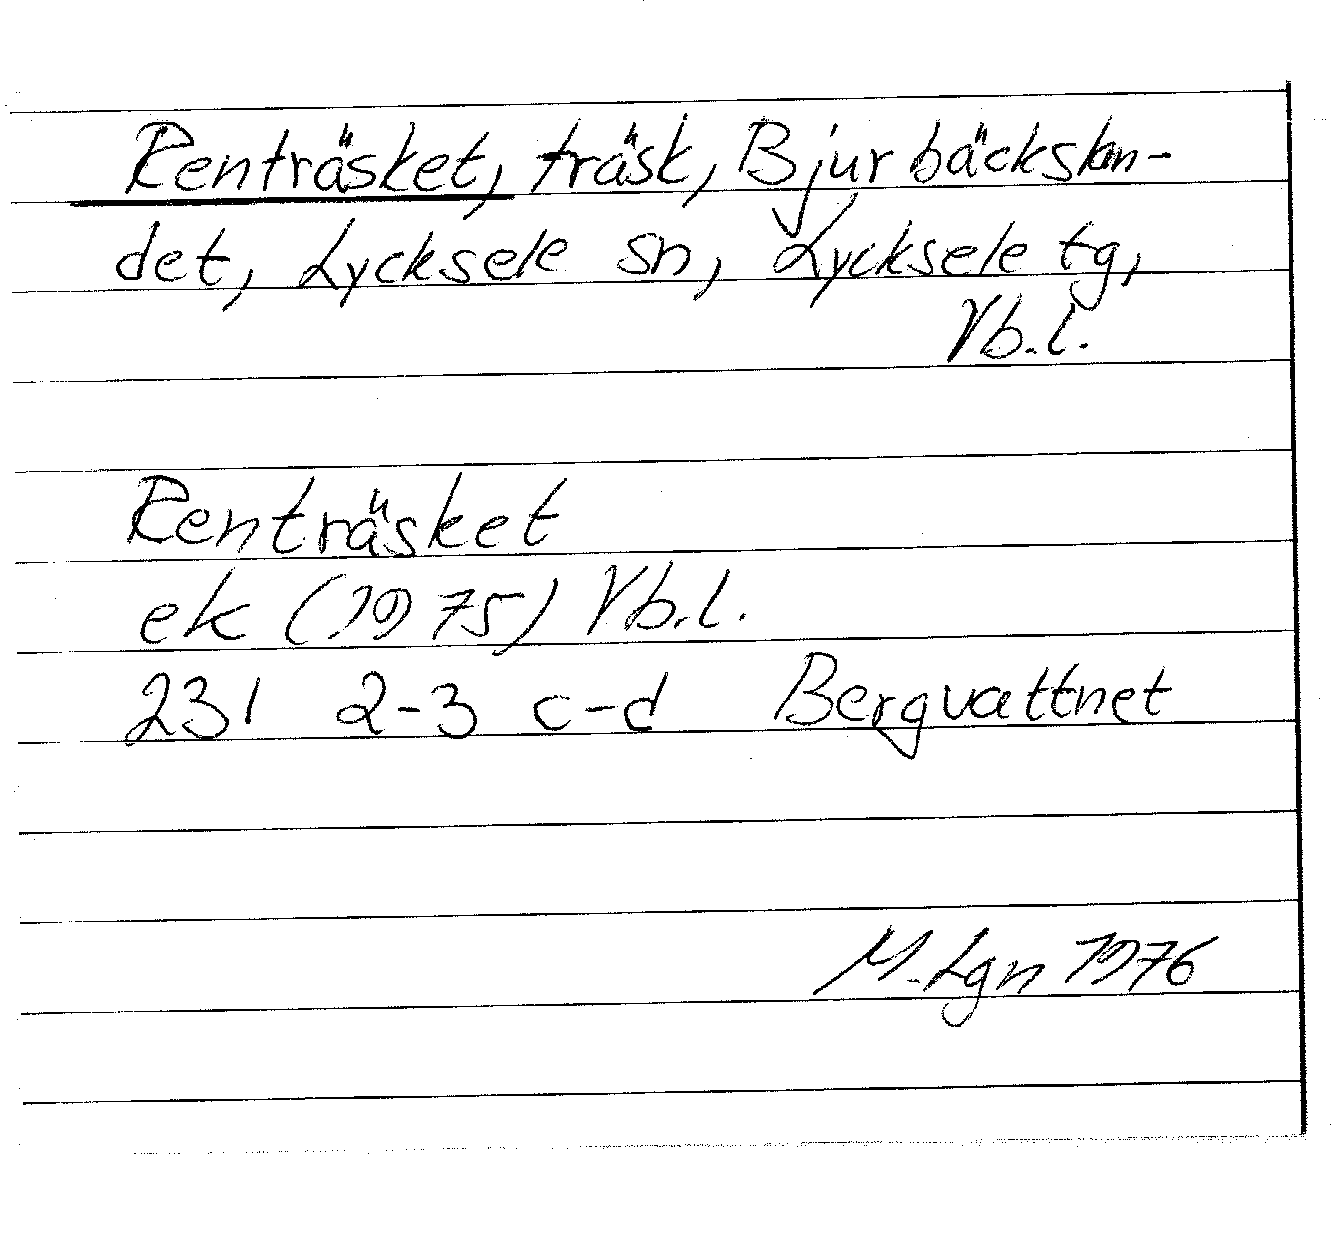 Renträsket, träsk, Bjurbäckslan-
det, Lycksele sn, Lycksele tg,
Vb.l.
Renträsket
ek (1975) Vb.l.
231 2-3 c-d Bergvattnet
M. Lgn 1976